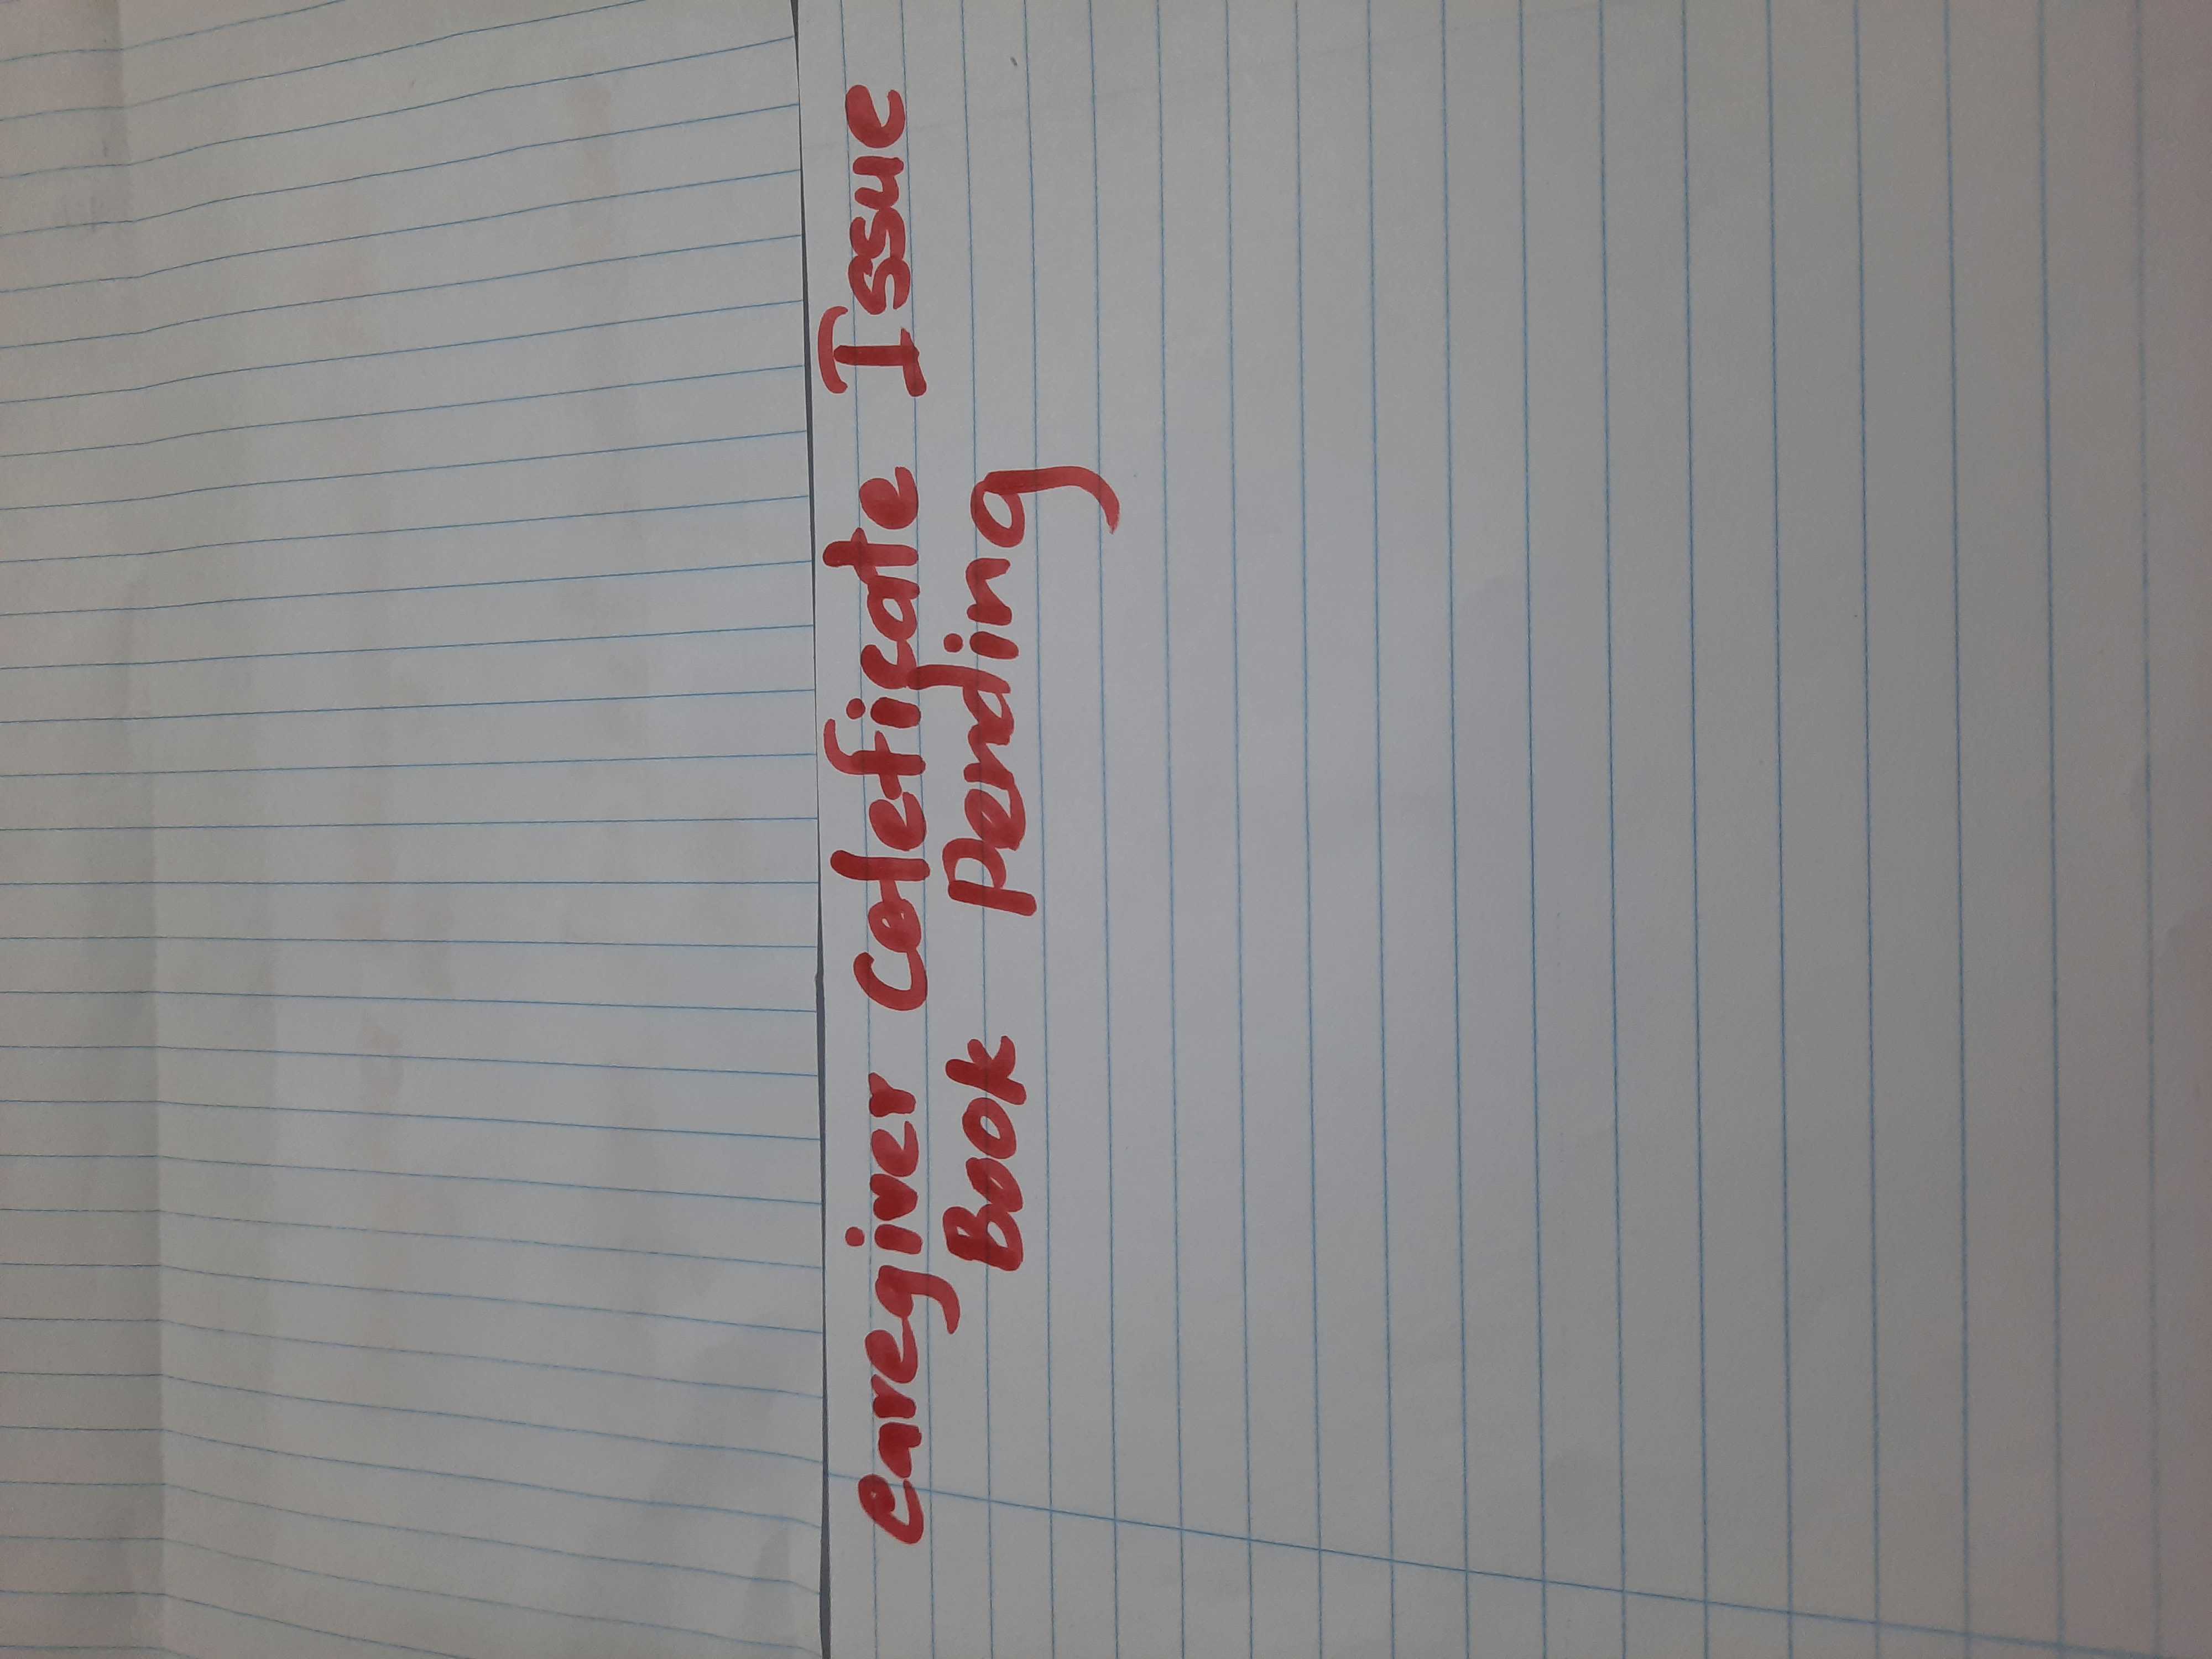 Caregiver Celeficate Issue
Book Pending